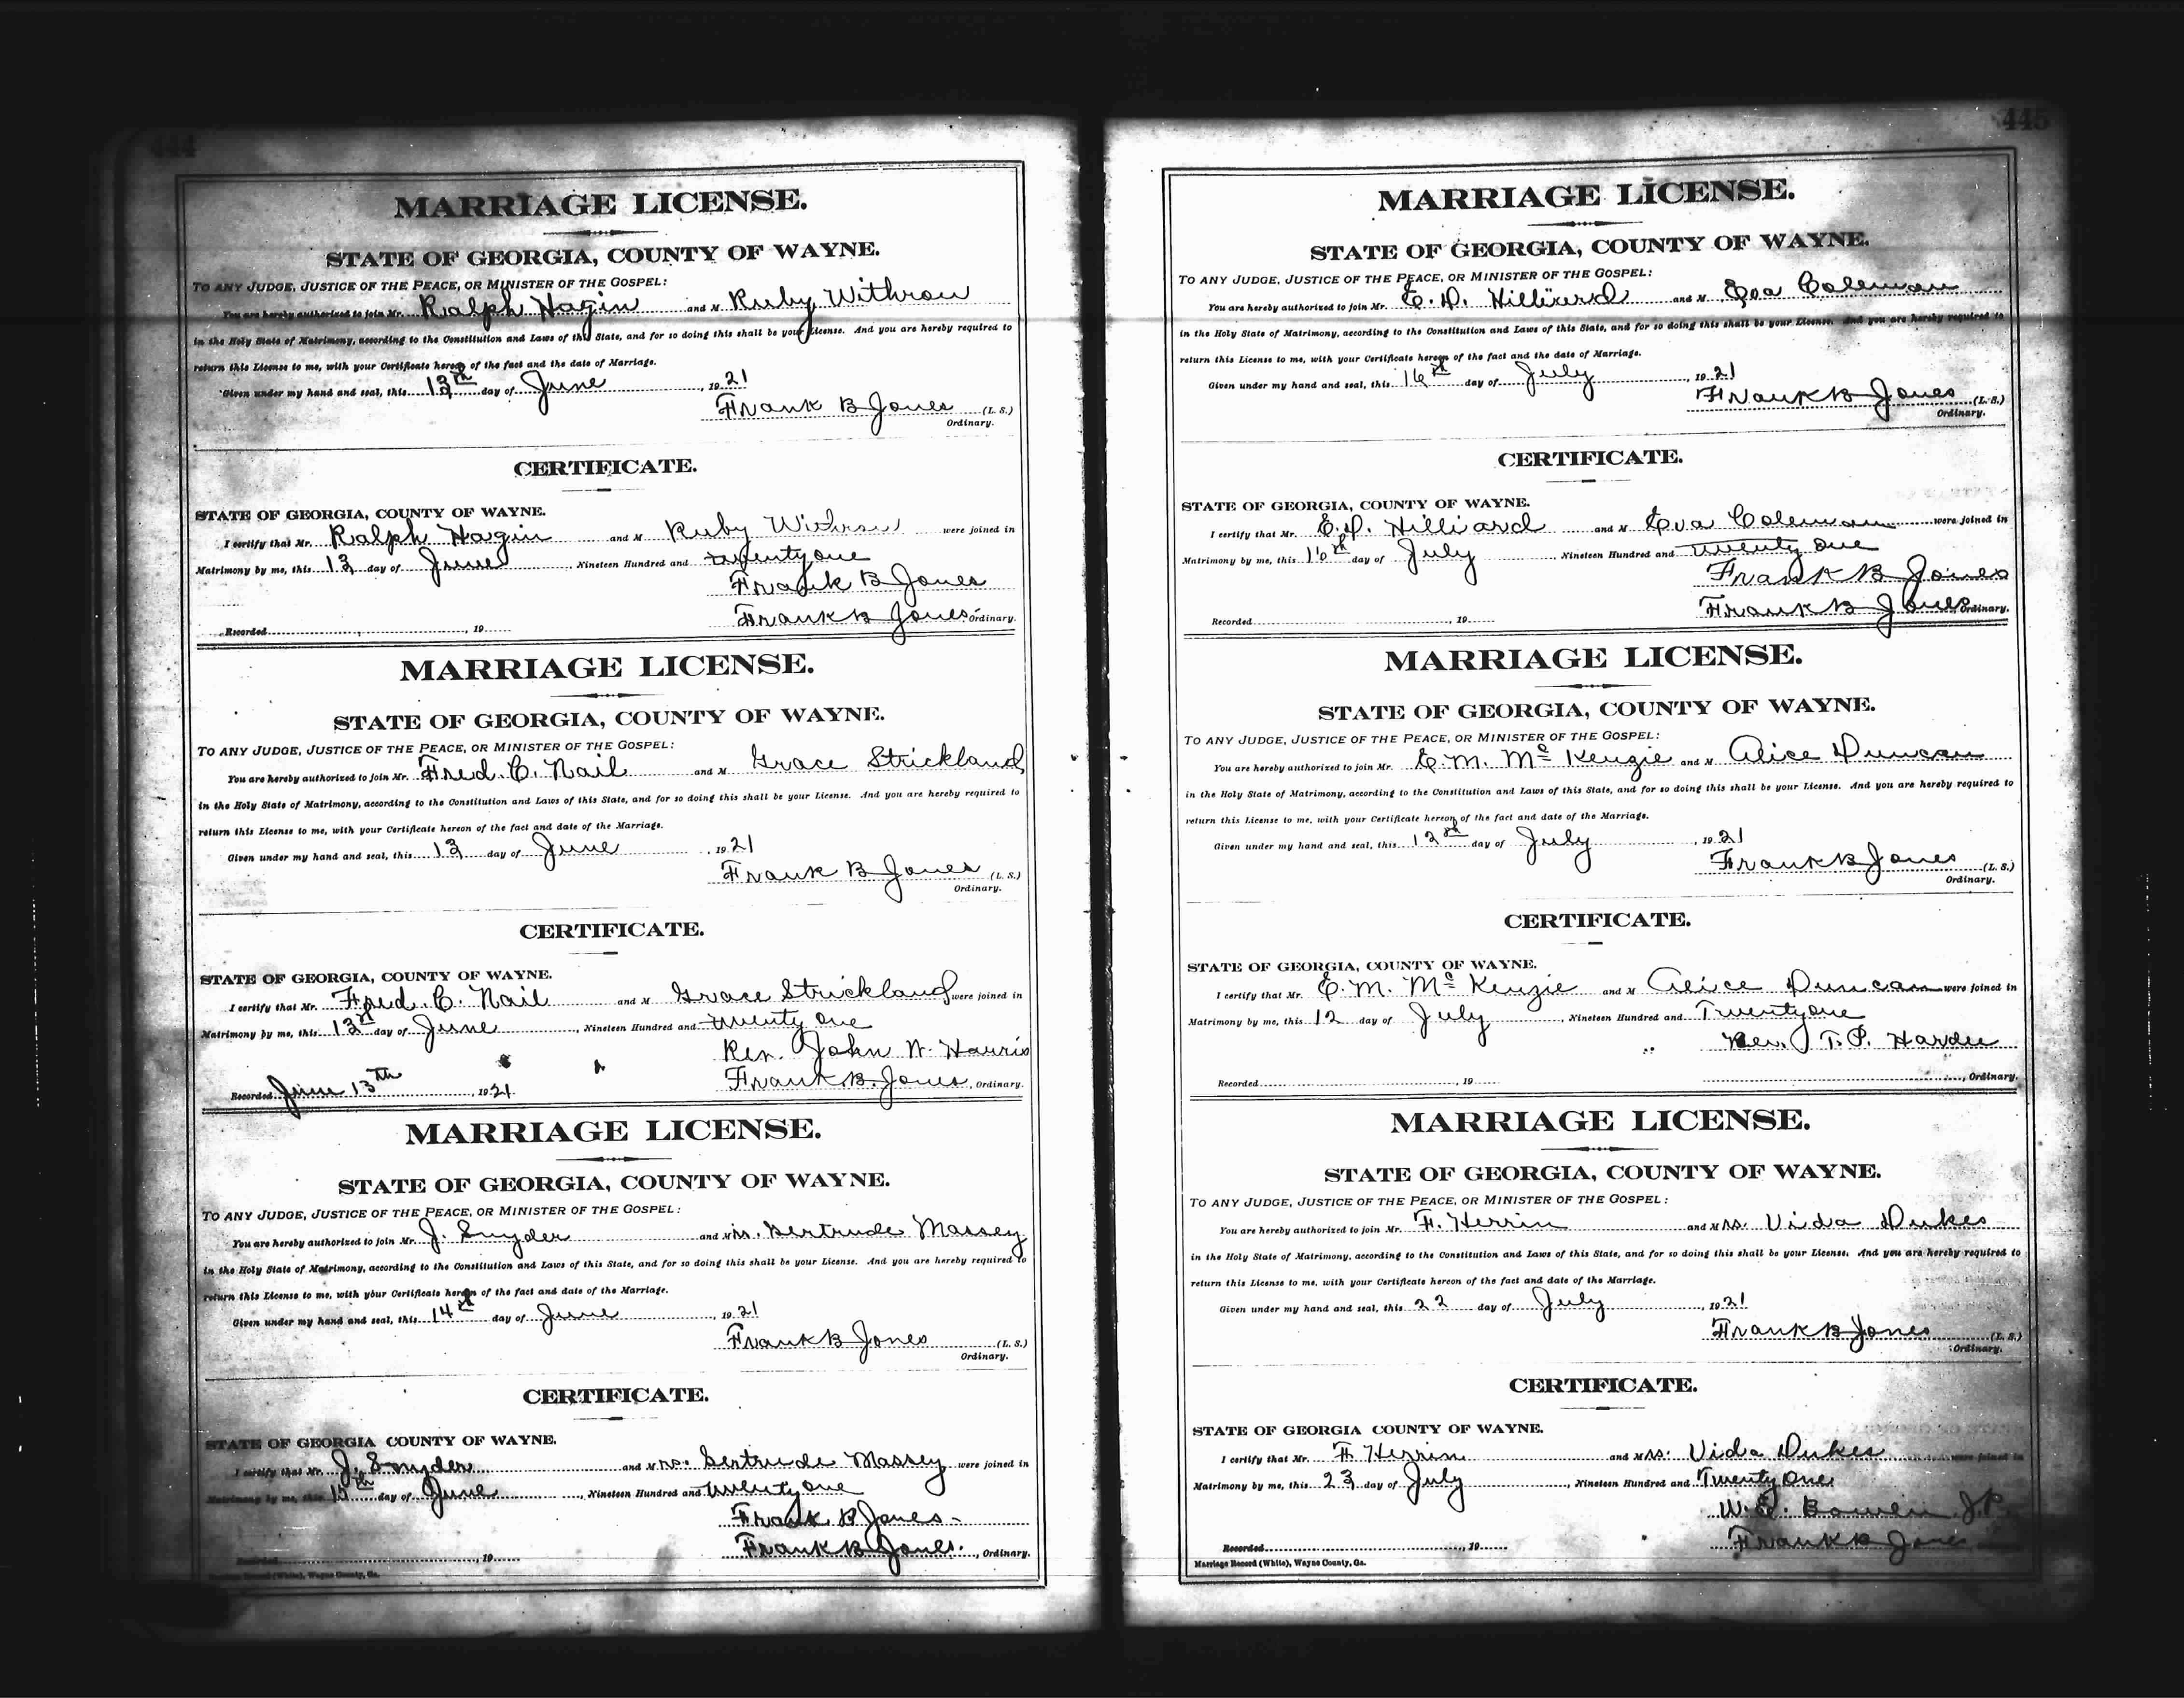 444
MARRIAGE LICENSE.
STATE OF GEORGIA, COUNTY OF WAYNE.
TO ANY JUDGE, JUSTICE OF THE PEACE, OR MINISTER OF THE GOSPEL:
You are hereby authorized to join Mr. Ralph Hagin and M Ruby Withrow
in the Holy State of Matrimony, according to the Constitution and Laws of this State, and for so doing this shall be your License. And you are hereby required to
return this License to me, with your Certificate hereon of the fact and the date of Marriage.
Given under my hand and seal, this 13th day of June, 1921
Frank B Jones (L. S.)
Ordinary.
CERTIFICATE.
STATE OF GEORGIA, COUNTY OF WAYNE.
I certify that Mr. Ralph Hagin and M Ruby Withrow were joined in
Matrimony by me, this 13 day of June, Nineteen Hundred and twenty one
Frank B Jones
Recorded 19 Frank B Jones Ordinary.
MARRIAGE LICENSE.
STATE OF GEORGIA, COUNTY OF WAYNE.
TO ANY JUDGE, JUSTICE OF THE PEACE, OR MINISTER OF THE GOSPEL:
You are hereby authorized to join Mr. Fred. C. Nail and M Grace Strickland
in the Holy State of Matrimony, according to the Constitution and Laws of this State, and for so doing this shall be your License. And you are hereby required to
return this License to me, with your Certificate hereon of the fact and date of the Marriage.
Given under my hand and seal, this 13 day of June, 1921
Frank B Jones (L. S.)
Ordinary.
CERTIFICATE.
STATE OF GEORGIA, COUNTY OF WAYNE.
I certify that Mr. Fred. C. Nail and M Grace Strickland were joined in
Matrimony by me, this 13 day of June, Nineteen Hundred and twenty one
Rev. John W. Harris
Recorded June 13th, 1921. Frank B. Jones, Ordinary.
MARRIAGE LICENSE.
STATE OF GEORGIA, COUNTY OF WAYNE.
TO ANY JUDGE, JUSTICE OF THE PEACE, OR MINISTER OF THE GOSPEL:
You are hereby authorized to join Mr. J. Snyder and Mrs. Gertrude Massey
in the Holy State of Matrimony, according to the Constitution and Laws of this State, and for so doing this shall be your License. And you are hereby required to
return this License to me, with your Certificate hereon of the fact and date of the Marriage.
Given under my hand and seal, this 14th day of June, 1921
Frank B Jones (L. S.)
Ordinary.
CERTIFICATE.
STATE OF GEORGIA COUNTY OF WAYNE.
I certify that Mr. J. Snyder and Mrs. Gertrude Massey were joined in
Matrimony by me, this day of June, Nineteen Hundred and twenty one
Frank B Jones
Recorded, 19 Frank B Jones., Ordinary.
Marriage Record (White), Wayne County, Ga.
445
MARRIAGE LICENSE.
STATE OF GEORGIA, COUNTY OF WAYNE.
TO ANY JUDGE, JUSTICE OF THE PEACE, OR MINISTER OF THE GOSPEL:
You are hereby authorized to join Mr. E. D. Hilliard and M Eva Coleman
in the Holy State of Matrimony, according to the Constitution and Laws of this State, and for so doing this shall be your License. And you are hereby required to
return this License to me, with your Certificate hereon of the fact and the date of Marriage.
Given under my hand and seal, this 16th day of July, 1921
Frank B Jones (L. S.)
Ordinary.
CERTIFICATE.
STATE OF GEORGIA, COUNTY OF WAYNE.
I certify that Mr. E. D. Hilliard and M Eva Coleman were joined in
Matrimony by me, this 16th day of July, Nineteen Hundred and twenty one
Frank B Jones
Recorded, 19 Frank B Jones, Ordinary.
MARRIAGE LICENSE.
STATE OF GEORGIA, COUNTY OF WAYNE.
TO ANY JUDGE, JUSTICE OF THE PEACE, OR MINISTER OF THE GOSPEL:
You are hereby authorized to join Mr. E. M. Mc Kenzie and M Alice Duncan
in the Holy State of Matrimony, according to the Constitution and Laws of this State, and for so doing this shall be your License. And you are hereby required to
return this License to me, with your Certificate hereon of the fact and date of the Marriage.
Given under my hand and seal, this 12th day of July, 1921
Frank B Jones (L. S.)
Ordinary.
CERTIFICATE.
STATE OF GEORGIA, COUNTY OF WAYNE.
I certify that Mr. E. M. Mc Kenzie and M Alice Duncan were joined in
Matrimony by me, this 12 day of July, Nineteen Hundred and Twenty one
Rev. T. P. Hardee
Recorded, 19, Ordinary.
MARRIAGE LICENSE.
STATE OF GEORGIA, COUNTY OF WAYNE.
TO ANY JUDGE, JUSTICE OF THE PEACE, OR MINISTER OF THE GOSPEL:
You are hereby authorized to join Mr. F. Herrin and Mrs. Vida Dukes
in the Holy State of Matrimony, according to the Constitution and Laws of this State, and for so doing this shall be your License. And you are hereby required to
return this License to me, with your Certificate hereon of the fact and date of the Marriage.
Given under my hand and seal, this 22 day of July, 1921
Frank B Jones (L. S.)
Ordinary.
CERTIFICATE.
STATE OF GEORGIA COUNTY OF WAYNE.
I certify that Mr. F. Herrin and Mrs. Vida Dukes were joined in
Matrimony by me, this 23 day of July, Nineteen Hundred and Twenty One
W. E. Bowen. J. P.
Recorded, 19 Frank B Jones
Marriage Record (White), Wayne County, Ga.